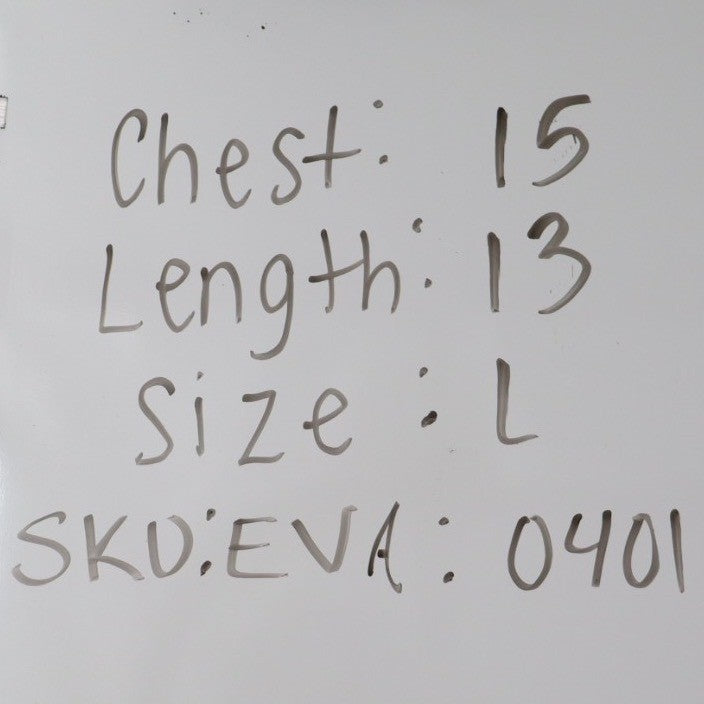 Chest: 15
Length: 13
Size: L
SKU:EVA: 0401